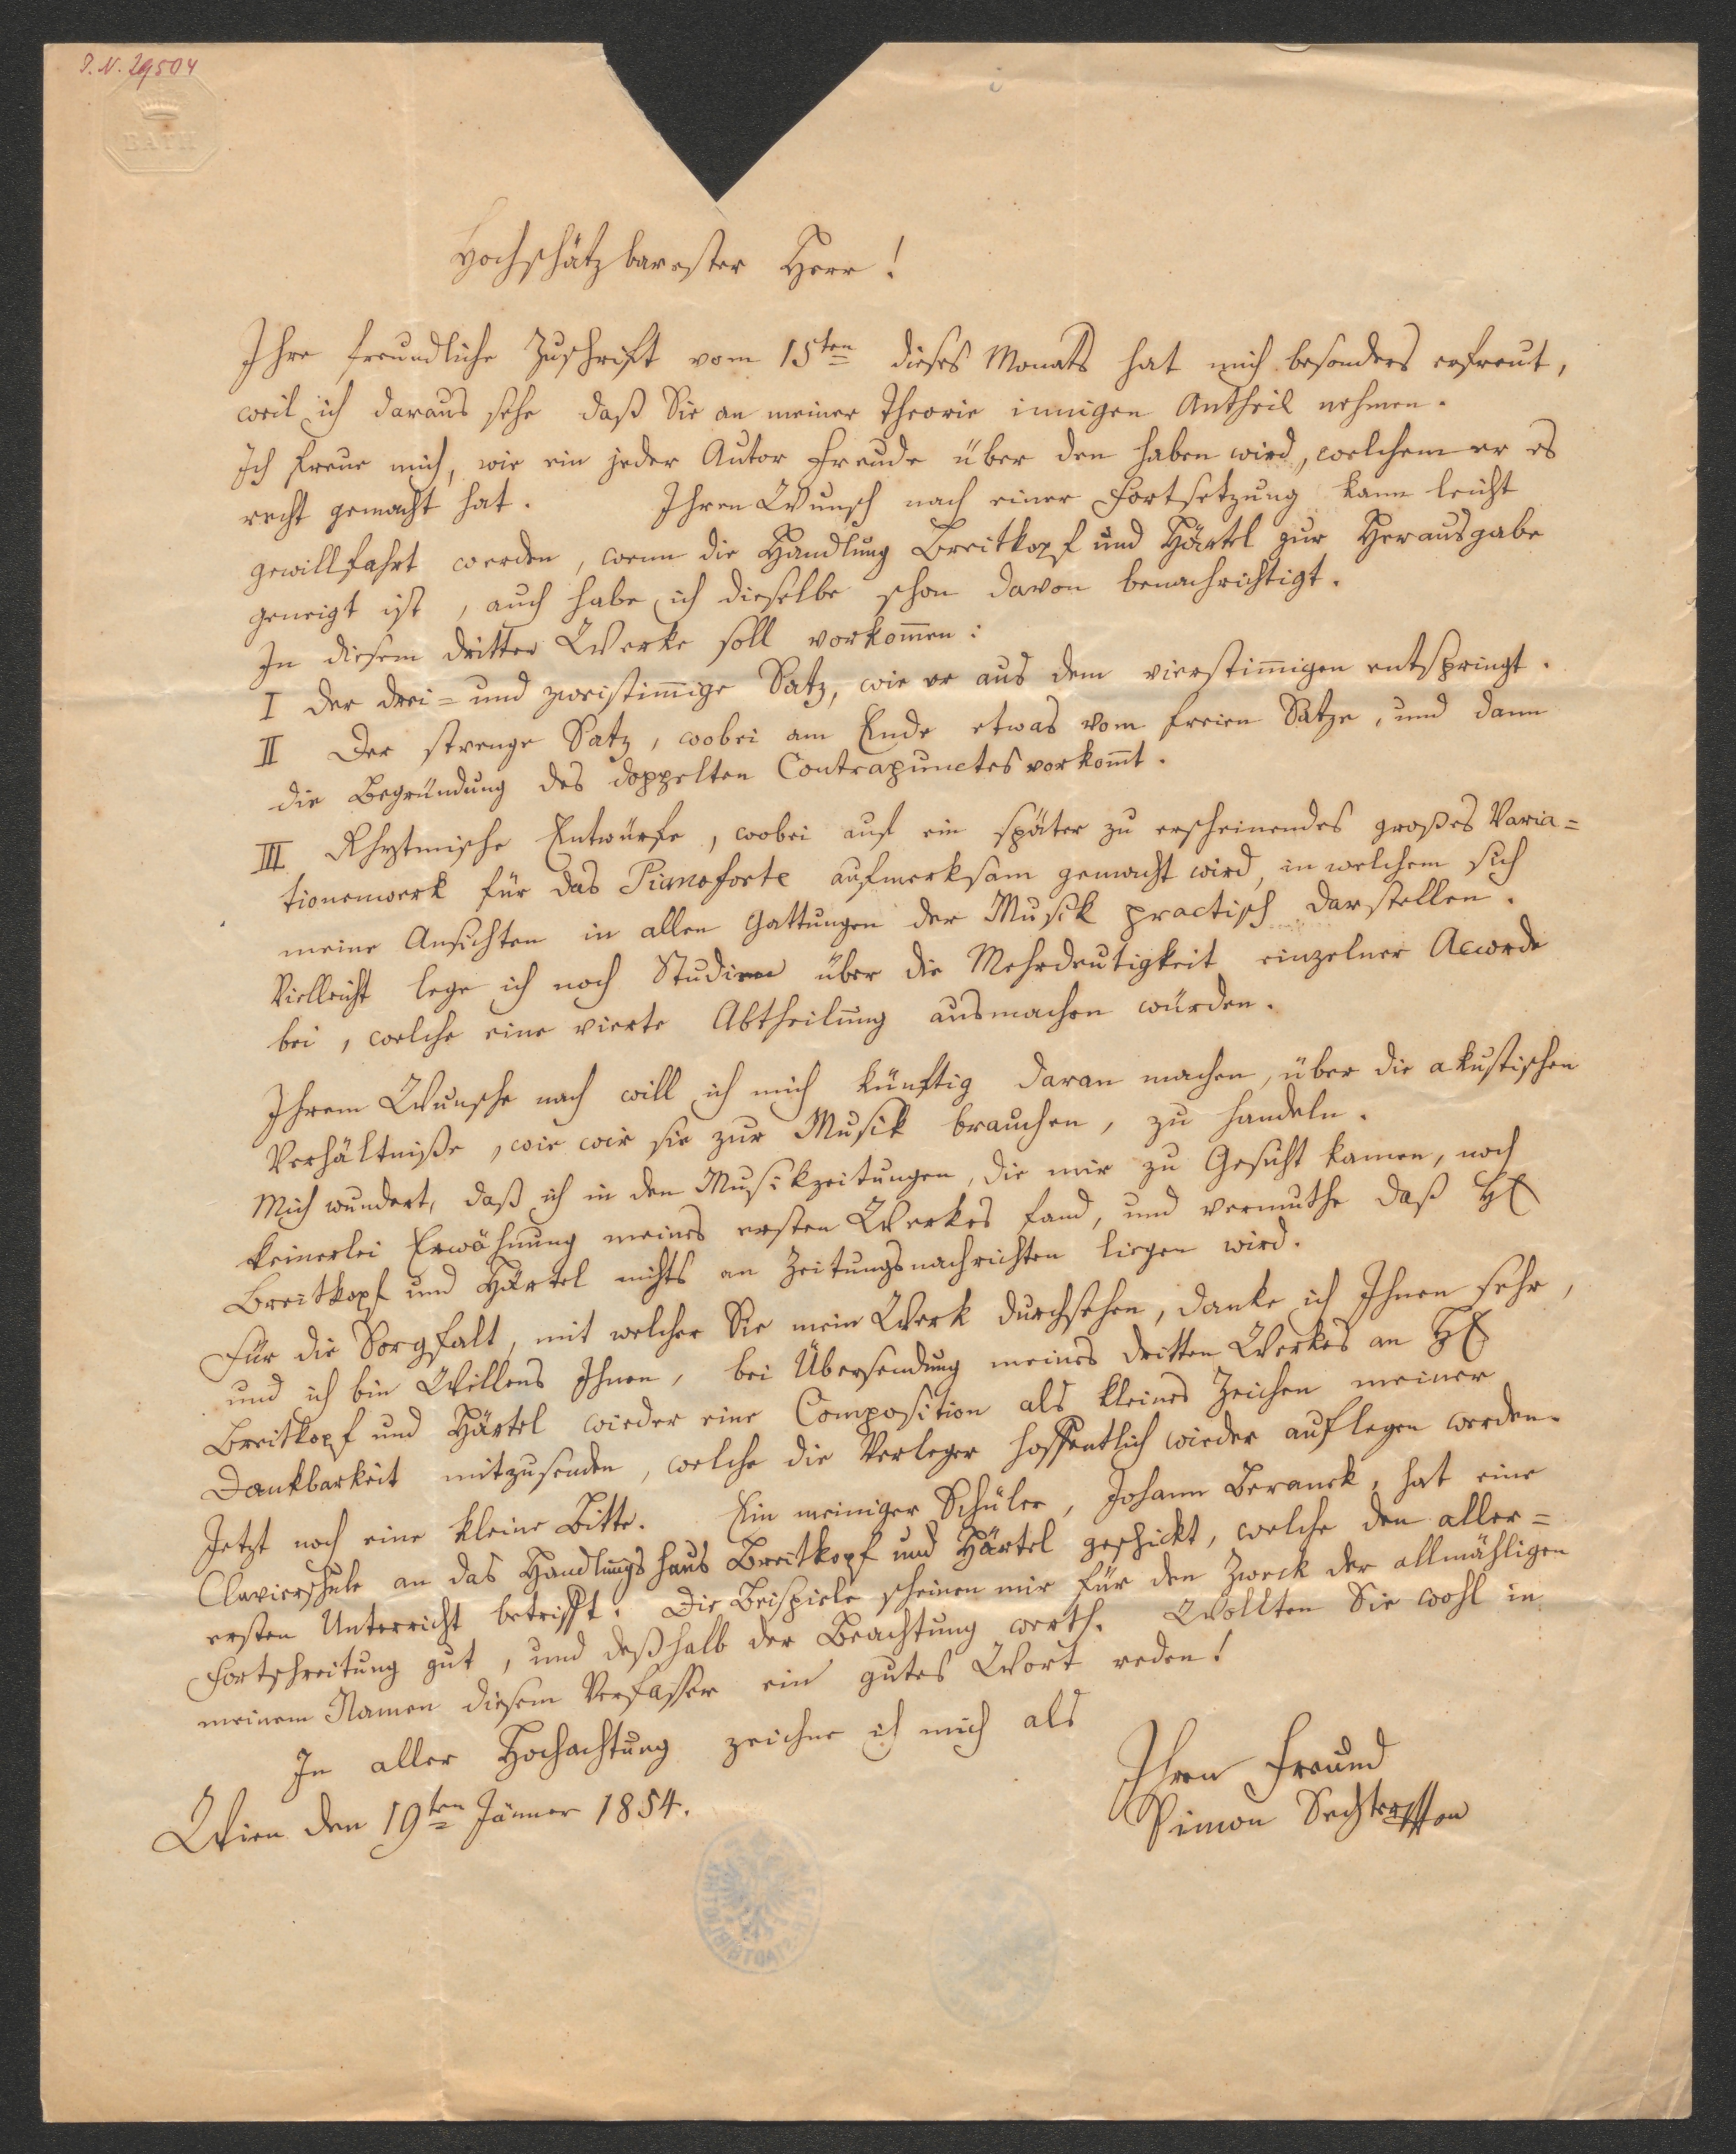 I. N. 29504
BATH
Hochschätzbarester Herr!
Ihre freundliche Zuschrift vom 15ten dieses Monats hat mich besonders erfreut,
weil ich daraus sehe daß Sie an meiner Theorie innigen Antheil nehmen.
Ich freue mich, wie ein jeder Autor Freude über den haben wird, welchem er es
recht gemacht hat. Ihren Wunsch nach einer Fortsetzung kann leicht
gewillfahrt werden, wenn die Handlung Breitkopf und Härtel zur Herausgabe
geneigt ist, auch habe ich dieselbe schon davon benachrichtigt.
In diesem dritten Werke soll vorkom̄en:
I der drei= und zweistim̄ige Satz, wie er aus dem vierstim̄igen entspringt.
II Der strenge Satz, wobei am Ende etwas vom freien Satze, und dann
die Begründung des doppelten Contrapunctes vorkom̄t.
III Rhytmische Entwürfe, wobei auf ein später zu erscheinendes großes Varia=
tionenwerk für das Pianoforte aufmerksam gemacht wird, in welchem sich
meine Ansichten in allen Gattungen der Musik practisch darstellen.
Vielleicht lege ich noch Studien über die Mehrdeutigkeit einzelner Accorde
bei, welche eine vierte Abtheilung ausmachen würden.
Ihrem Wunsche nach will ich mich künftig daran machen, über die akustischen
Verhältniße, wie wir sie zur Musik brauchen, zu handeln.
Mich wundert, daß ich in den Musikzeitungen, die mir zu Gesicht kamen, noch
keinerlei Erwähnung meines ersten Werkes fand, und vermuthe daß H
Breitkopf und Härtel nichts an Zeitungsnachrichten liegen wird.
Für die Sorgfalt, mit welcher Sie mein Werk durchsehen, danke ich Ihnen sehr,
und ich bin Willens Ihnen, bei Übersendung meines dritten Werkes an H
Breitkopf und Härtel wieder eine Composition als kleines Zeichen meiner
Dankbarkeit mitzusenden, welche die Verleger hoffentlich wieder auflegen werden.
Jetzt noch eine kleine Bitte. Ein meiniger Schüler, Johann Beranek, hat eine
Clavierschule an das Handlungshaus Breitkopf und Härtel geschickt, welche den aller=
ersten Unterricht betrifft. Die Beispiele scheinen mir für den Zweck der allmähligen
Fortschreitung gut, und deßhalb der Beachtung werth. Wollten Sie wohl in
meinem Namen diesem Verfasser ein gutes Wort reden!
In aller Hochachtung zeichne ich mich als
Ihren Freund
Wien den 19ten Jänner 1854.
Simon Sechter